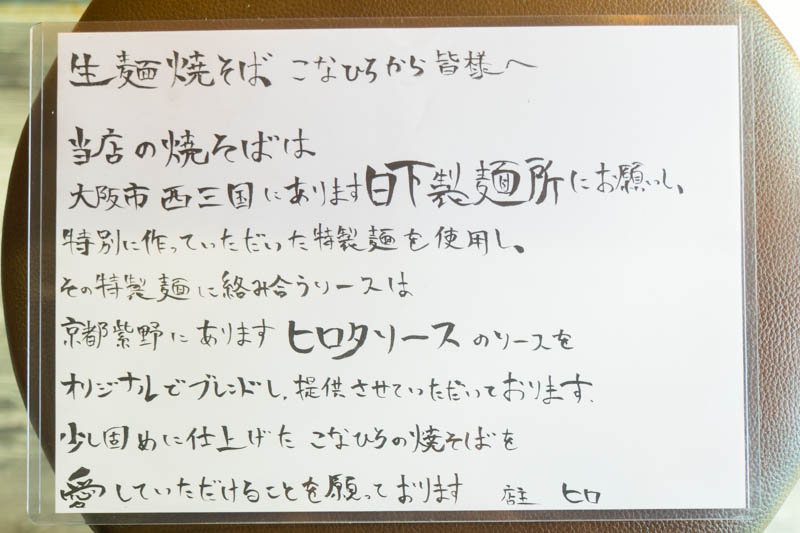 生麺焼そば こなひろから皆様へ
当店の焼そばは
大阪市西三国にあります日下製麺所にお願いし、
特別に作っていただいた特製麺を使用し、
その特製麺に絡み合うソースは
京都紫野にあります ヒロタソースのソースを
オリジナルでブレンドし、提供させていただいております。
少し固めに仕上げた こなひろの焼そばを
愛していただけることを願っております 店主 ヒロ